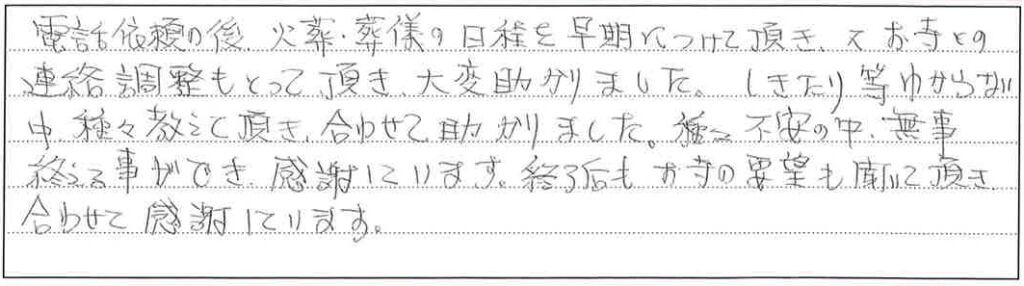 電話依頼の後、火葬・葬様の日程を早期につけて頂き、又お寺との
連絡調整もとって頂き、大変助かりました。しきたり等わからない
中、種々教えて頂き、合わせて助かりました。種々不安の中、無事
終える事ができ、感謝しています。終了后もお寺の要望も聞いて頂き
合わせて感謝しています。